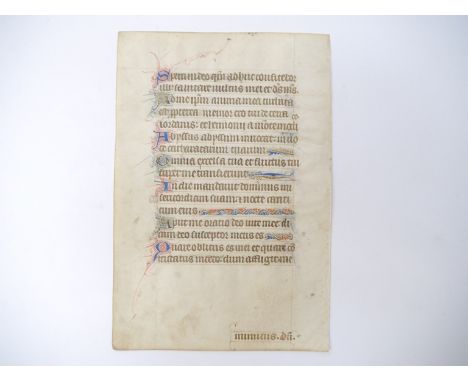 Spera in deo qm adhuc confitebor
illi salutare vultus mei et ds ms
Ad me ipm anima mea turbata
est ppterea memor ero tui de terra
iordanis et hermonii a monte mo
Abyssus abyssum invocat in vo
ce cataractarum tuarum
Omnia excelsa tua et fluctus tui
super me transierunt
In die mandavit dominus mi
sericordiam suam et nocte canti
cum eius
Apud me oratio deo vite mee di
cam deo susceptor meus es
Quare oblitus es mei et quare co
tristatus incedo dum affligit me
inimicus. dſi.